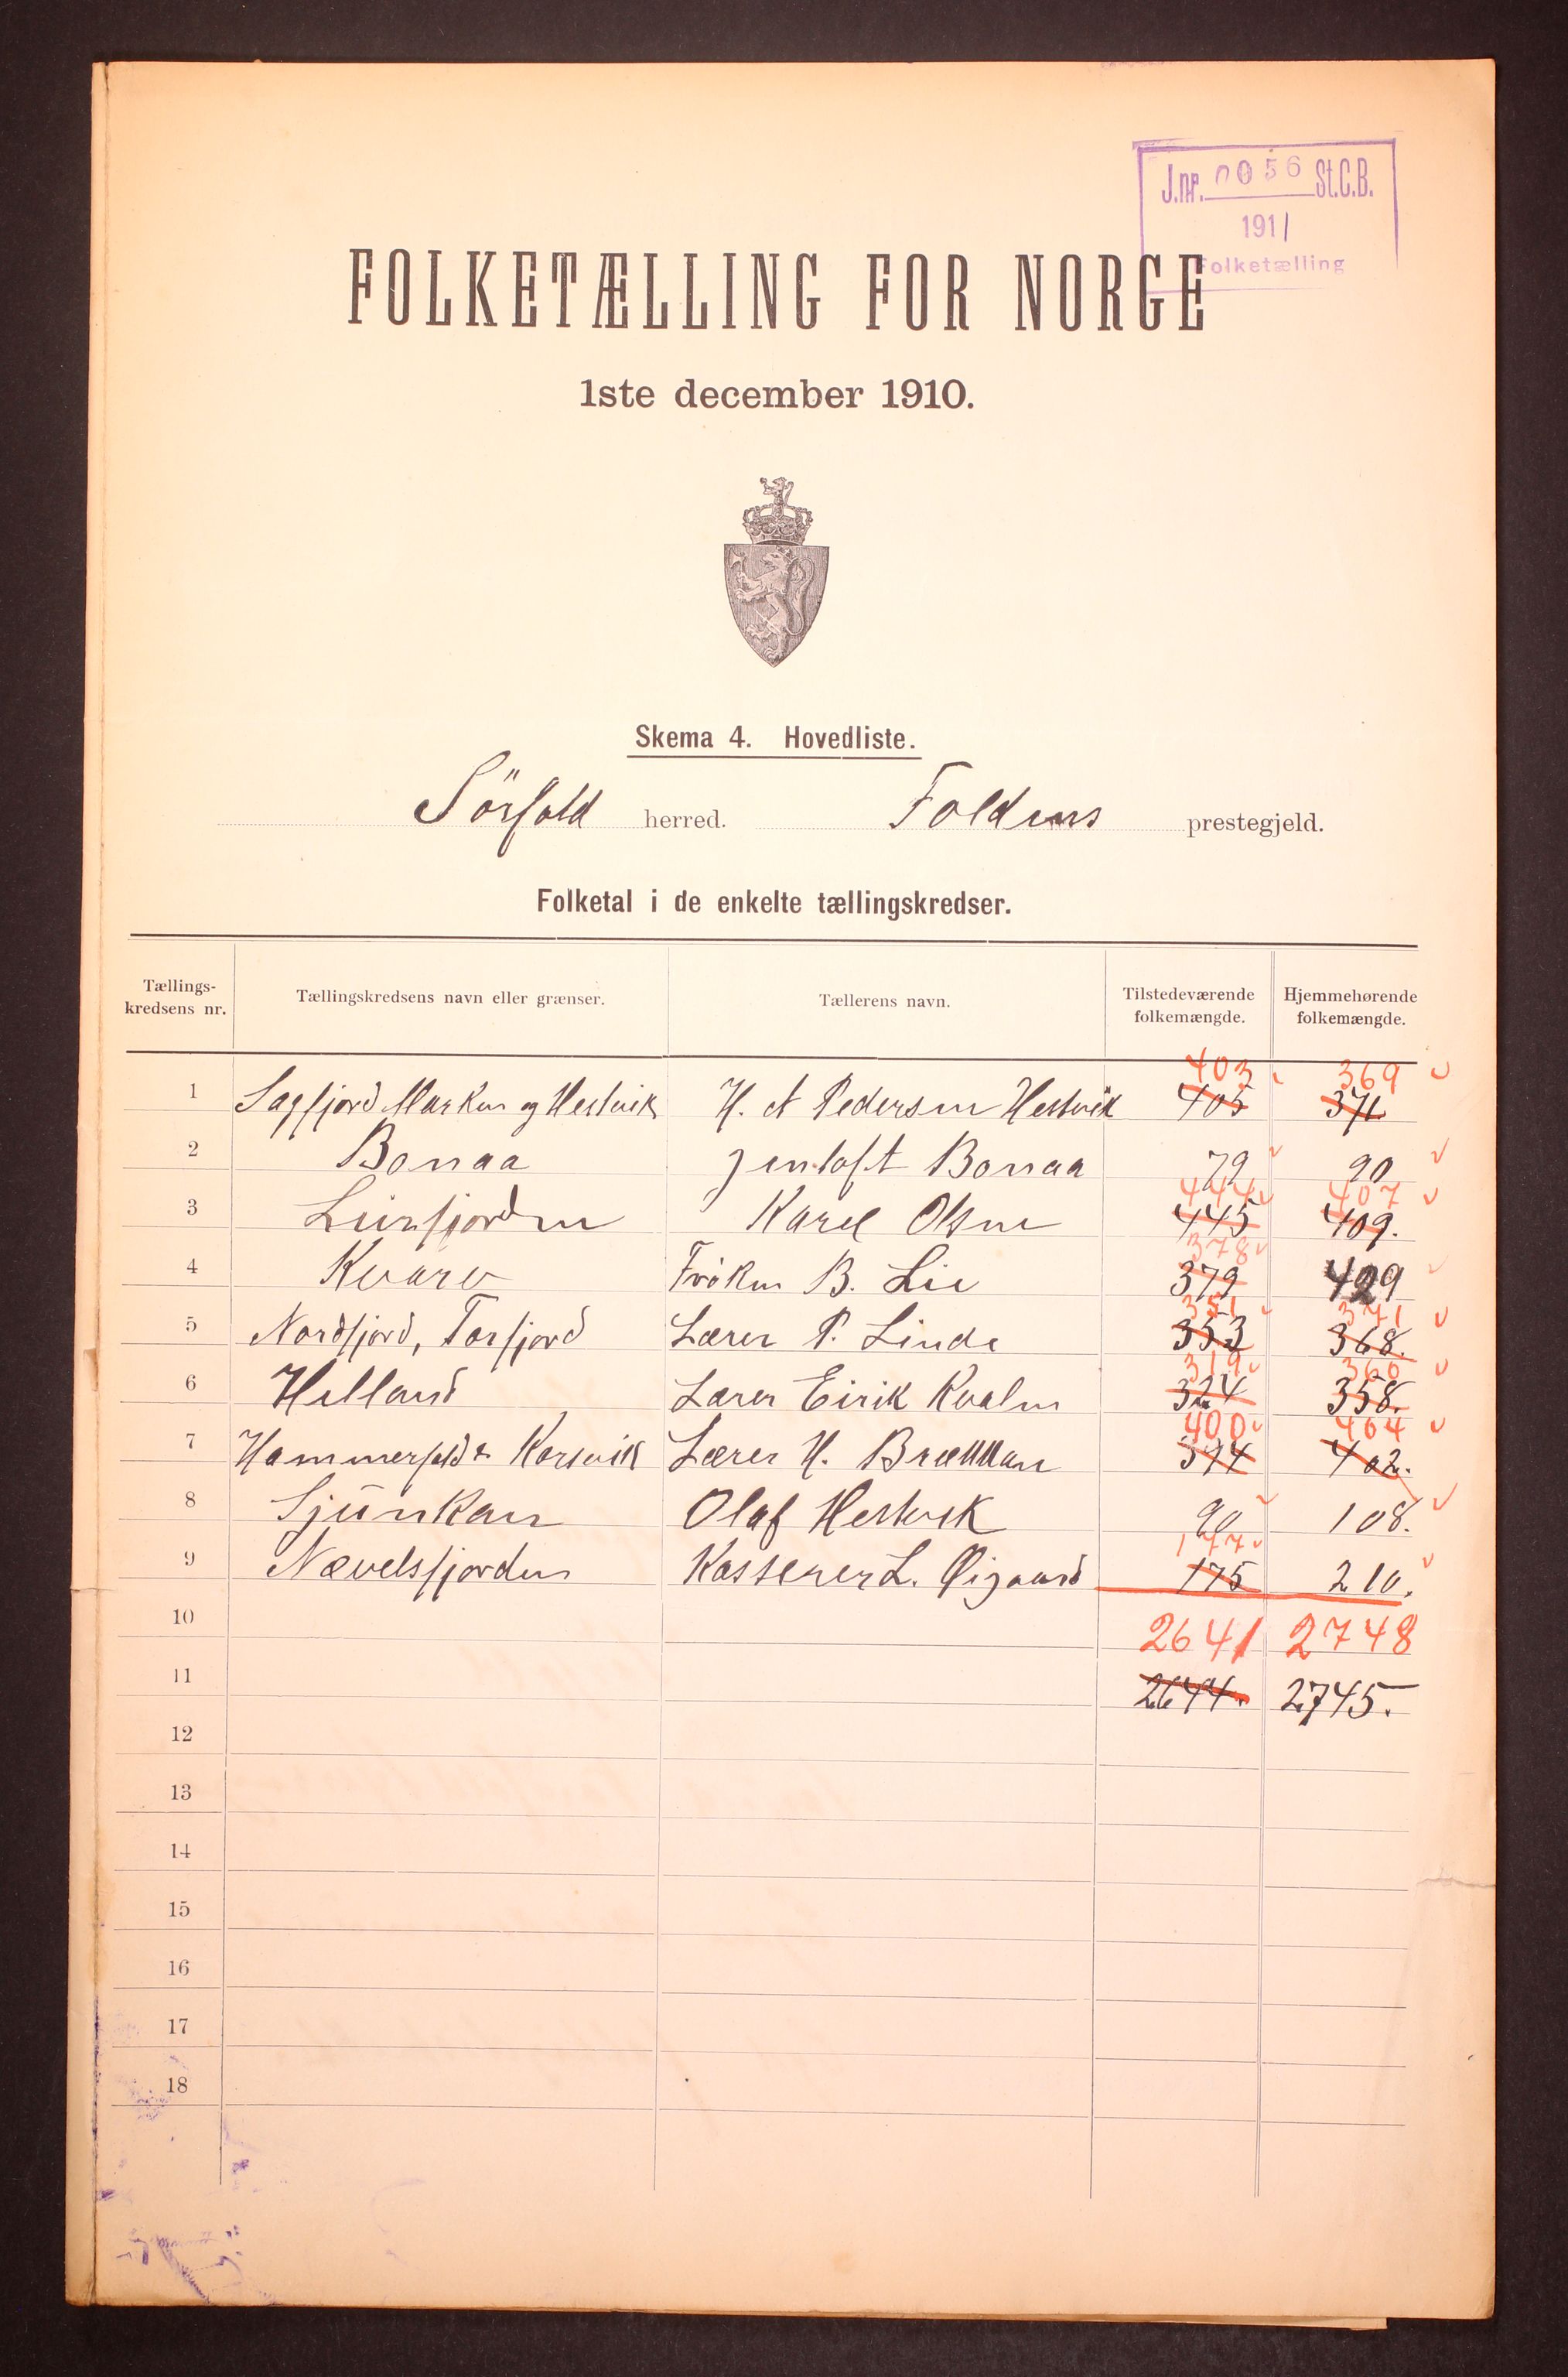 J.nr. 0056 St.C.B.
1911
Folketælling
FOLKETÆLLING FOR NORGE
1ste december 1910.
Skema 4. Hovedliste.
Sörfold herred. Foldens prestegjeld.
Folketal i de enkelte tællingskredser.
Tællings-kredsens nr. Tællingskredsens navn eller grænser. Tællerens navn. Tilstedeværende folkemængde. Hjemmehørende folkemængde.
403 369
1 Sagfjord Marken og Hestvik H. A Pedersen Hestvik 405 371
2 Bonaa Jentoft Bonaa 79 90
444 407
3 Leirfjorden Karel Olsen 445 409.
378
4 Kvarv Fröken B. Lie 379 429
351 371
5 Nordfjord, Torfjord Lærer P. Linde 353 368.
319 360
6 Helland Lærer Eirik Kvalen 324 358.
400 404
7 Hammerfald & Korsvik Lærer H. Brækkan 394 402.
8 Sjünkan Olaf Hestvik 90 108.
177
9 Nævelsfjorden Kasserer L. Øigaard 175 210.
10 2641 2748
11 2644. 2745.
12
13
14
15
16
17
18